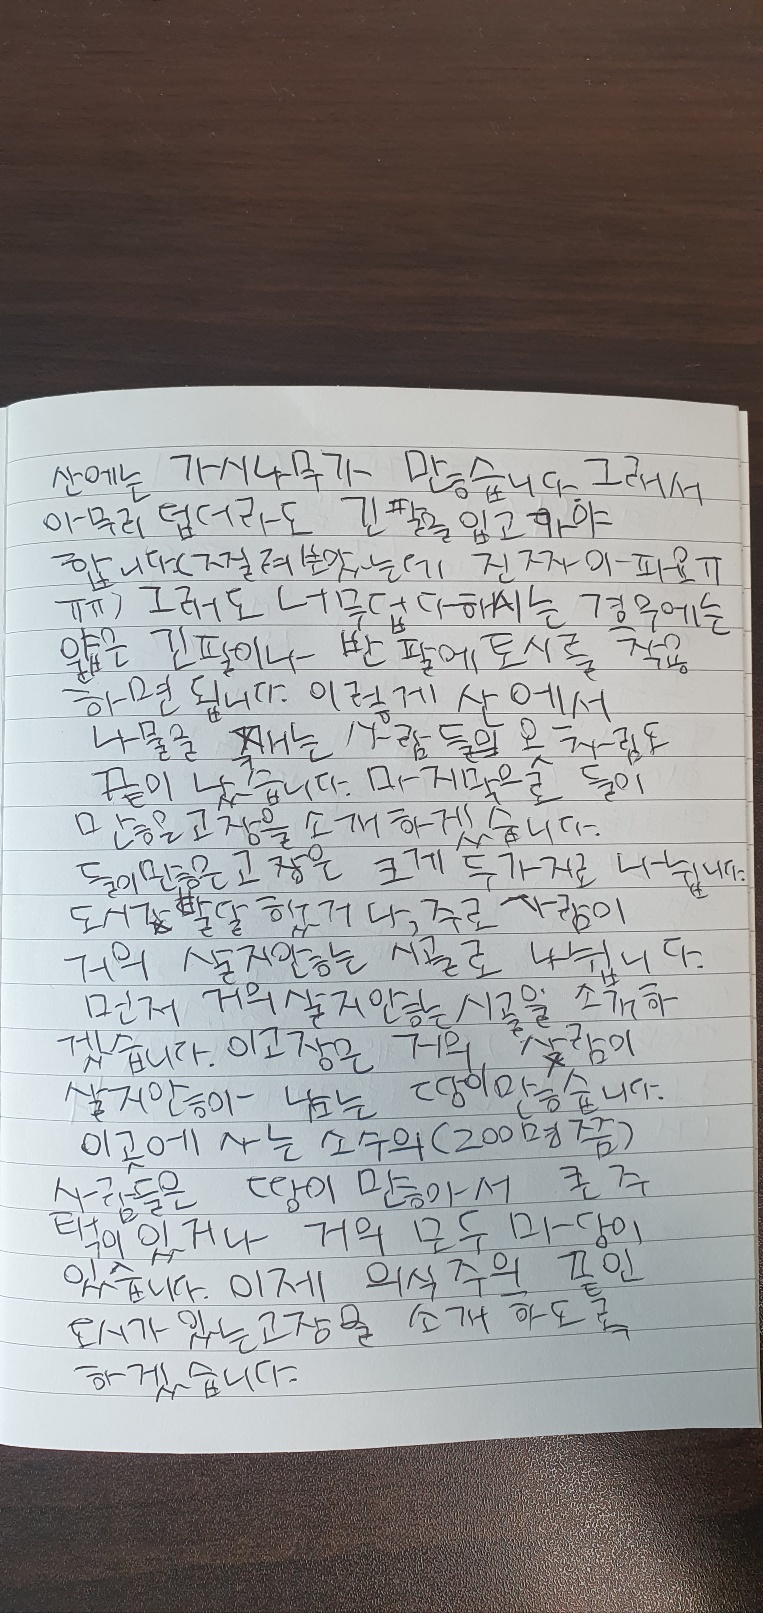 산에는 가시나무가 많습니다. 그래서
아무리 덥더라도 긴팔을 입고 가야
합니다.(찔려봤는데 진짜 아파요ㅠ
ㅠㅠ) 그래도 너무덥다하시는 경우에는
얇은 긴팔이나 반팔에 토시를 착용
하면 됩니다. 이렇게 산에서
나물을 캐는 사람들의 옷차림도
끝이 났습니다. 마지막으로 들이
많은고장을 소개하겠습니다.
들이많은고장은 크게 두가지로 나뉩니다.
도시가 발달 했거나, 주로 사람이
거의 살지안하는 시골로 나뉩니다.
먼저 거의살지안하는시골을 소개하
겠습니다. 이고장은 거의 사람이
살지안아 남는 땅이많습니다.
이곳에 사는 소수의(200명쯤)
사람들은 땅이 많아서 큰 주
택이있거나 거의 모두 마당이
있습니다. 이제 의식주의 끝인
도시가 있는고장을 소개 하도록
하겠습니다.